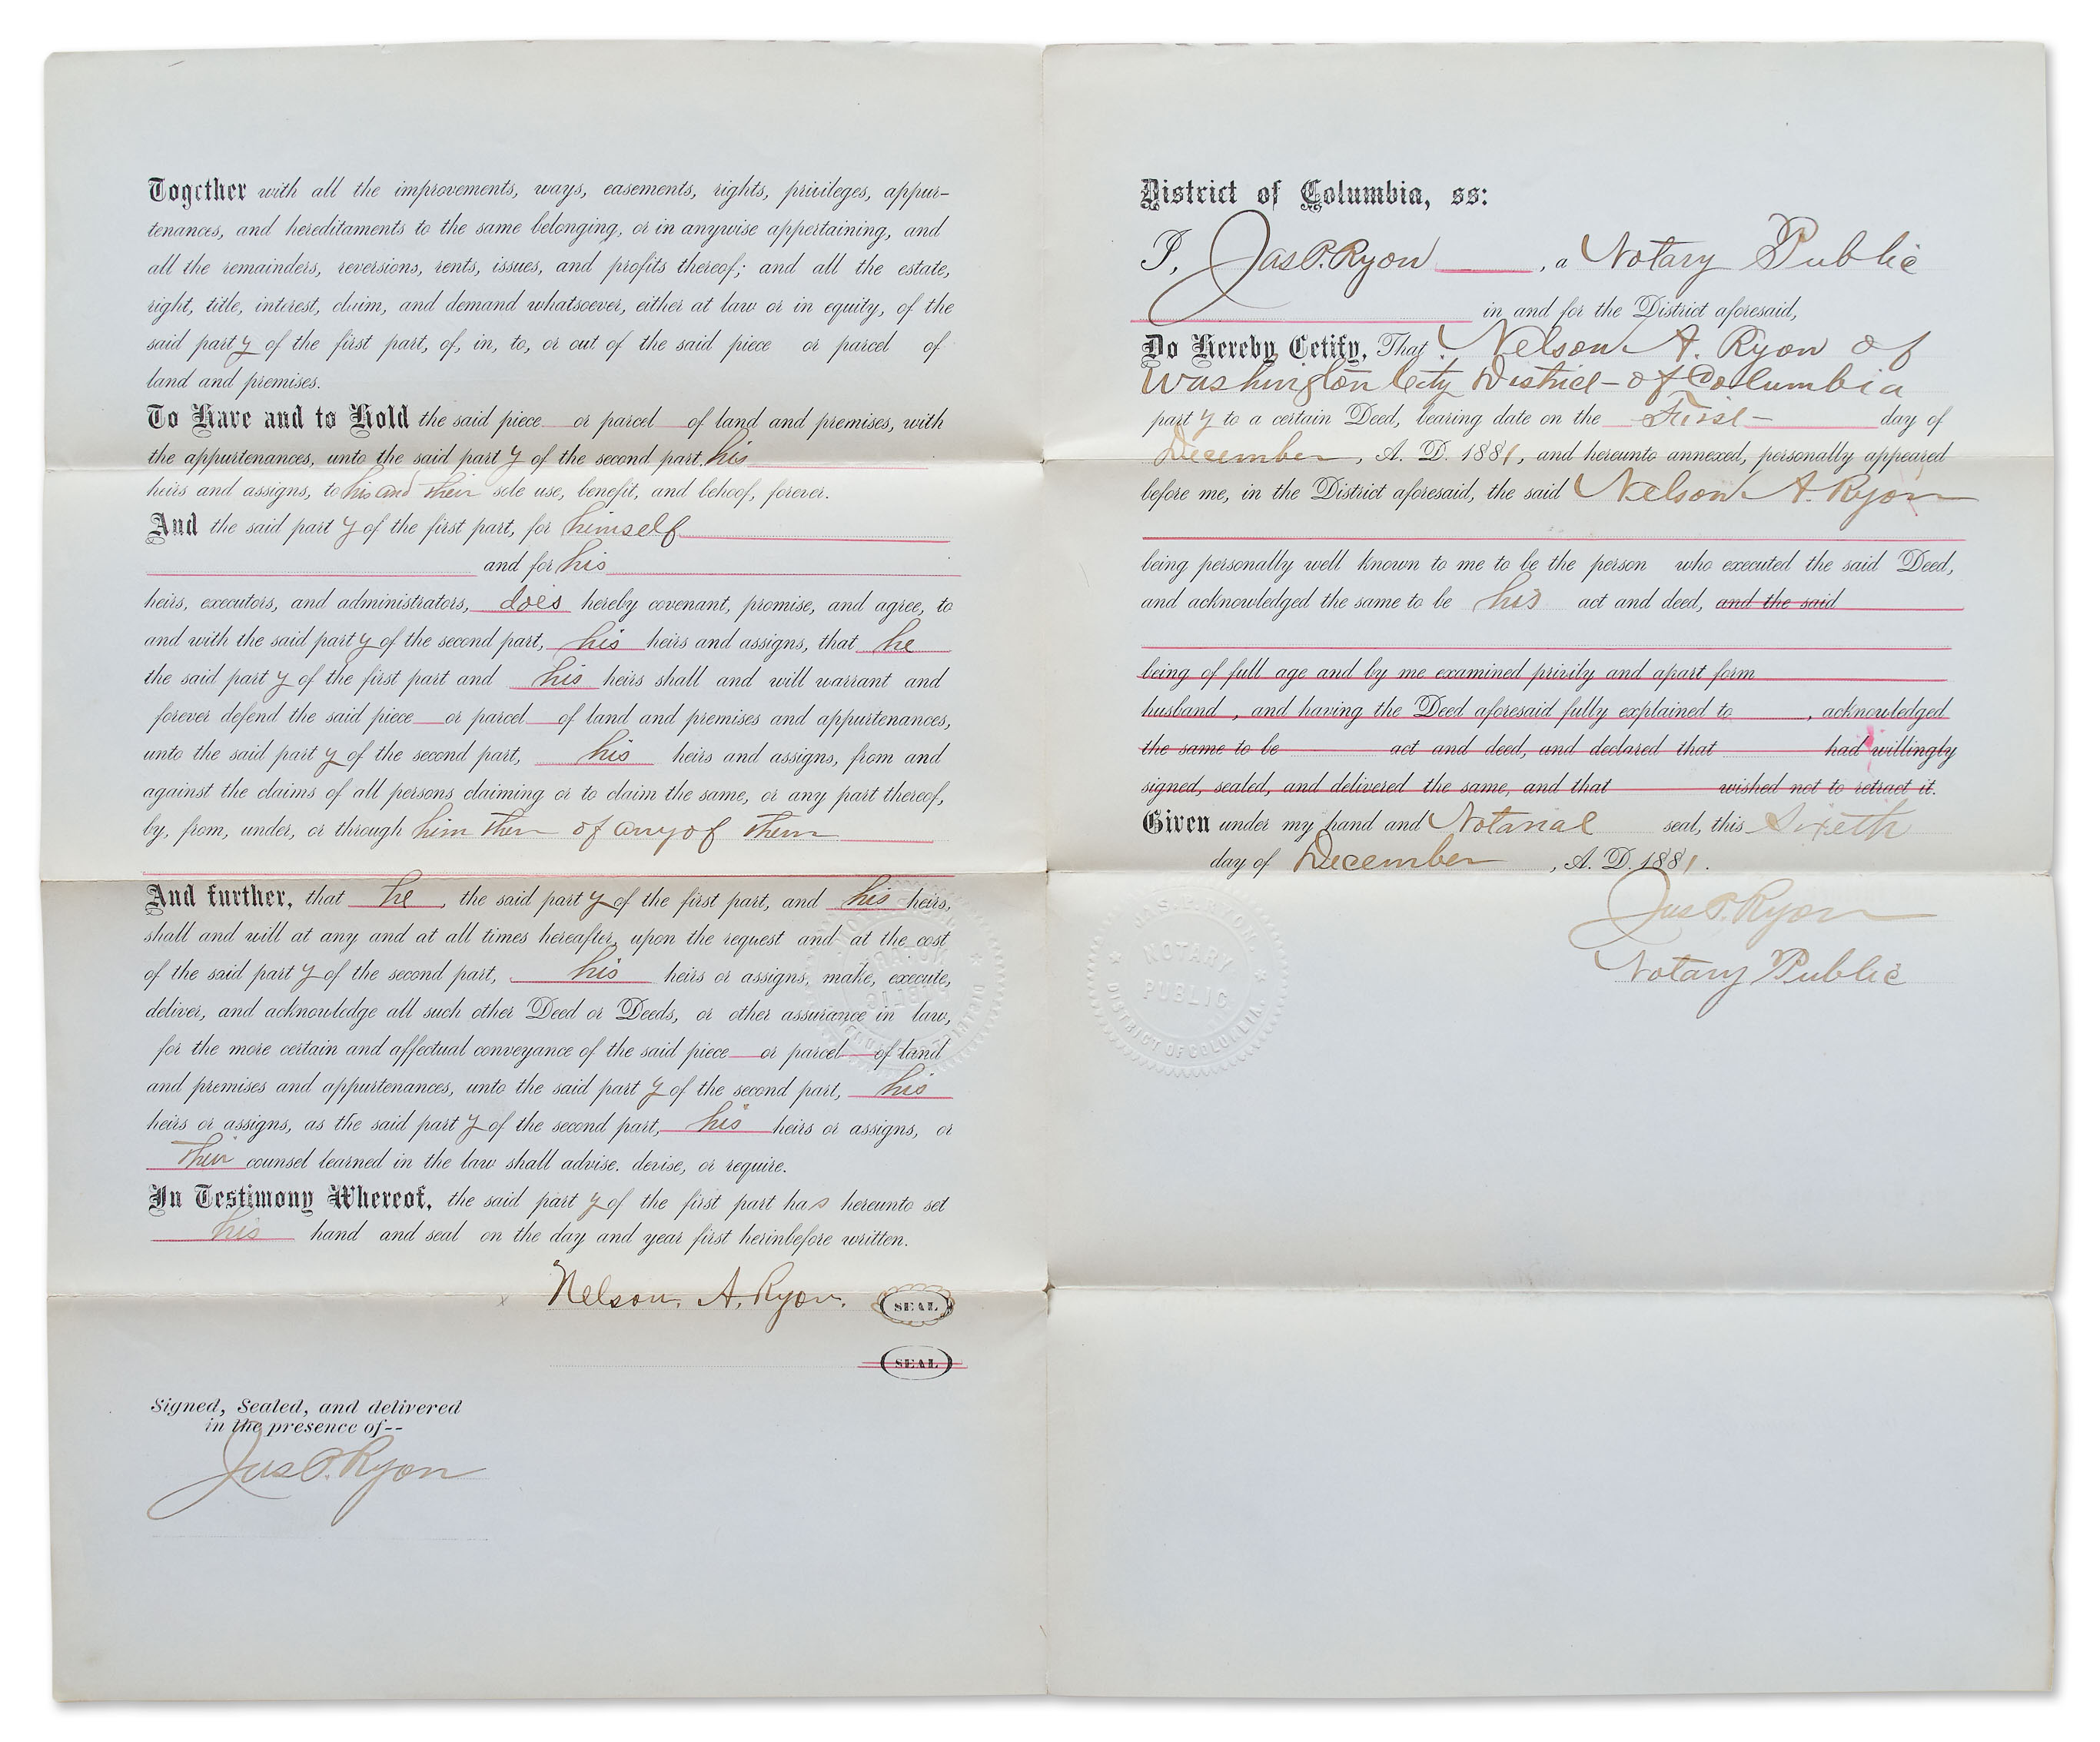 Together with all the improvements, ways, easements, rights, privileges, appur-
tenances, and hereditaments to the same belonging, or in anywise appertaining, and
all the remainders, reversions, rents, issues, and profits thereof; and all the estate,
right, title, interest, claim, and demand whatsoever, either at law or in equity, of the
said party of the first part, of, in, to, or out of the said piece or parcel of
land and premises.
To Have and to Hold the said piece or parcel of land and premises, with
the appurtenances, unto the said party of the second part, his
heirs and assigns, to his and their sole use, benefit, and behoof, forever.
And the said party of the first part, for himself
and for his
heirs, executors, and administrators, does hereby covenant, promise, and agree, to
and with the said party of the second part, his heirs and assigns, that he
the said party of the first part and his heirs shall and will warrant and
forever defend the said piece or parcel of land and premises and appurtenances,
unto the said party of the second part, his heirs and assigns, from and
against the claims of all persons claiming or to claim the same, or any part thereof,
by, from, under, or through him them of any of them
And further, that he, the said party of the first part, and his heirs,
shall and will at any and at all times hereafter, upon the request and at the cost
of the said party of the second part, his heirs or assigns, make, execute,
deliver, and acknowledge all such other Deed or Deeds, or other assurance in law,
for the more certain and affectual conveyance of the said piece or parcel of land
and premises and appurtenances, unto the said party of the second part, his
heirs or assigns, as the said party of the second part, his heirs or assigns, or
their counsel learned in the law shall advise, devise, or require.
In Testimony Whereof, the said party of the first part has hereunto set
his hand and seal on the day and year first herinbefore written.
Nelson. A. Ryon. SEAL
SEAL
Signed, Sealed, and delivered
in the presence of--
Jas P. Ryon
District of Columbia, ss:
I, Jas P. Ryon, a Notary Public
in and for the District aforesaid,
Do Hereby Cetify, That Nelson A. Ryon of
Washington City District of Columbia
party to a certain Deed, bearing date on the First day of
December, A. D. 1881, and hereunto annexed, personally appeared
before me, in the District aforesaid, the said Nelson A. Ryon
being personally well known to me to be the person who executed the said Deed,
and acknowledged the same to be his act and deed, and the said
being of full age and by me examined privily and apart form
husband, and having the Deed aforesaid fully explained to, acknowledged
the same to be act and deed, and declared that had willingly
signed, sealed, and delivered the same, and that wished not to retract it.
Given under my hand and Notarial seal, this Sixeth
day of December, A. D. 1881.
Jas P. Ryon
Notary Public
JAS. P. RYON.
NOTARY
PUBLIC
DISTRICT OF COLUMBIA.